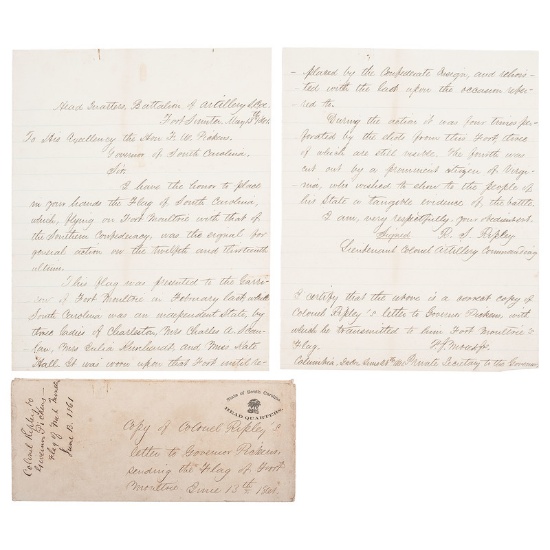 Head Quarters, Battalion of Artillery
Fort Sumter May 13th 1861
To His Excellency the Hon F. W. Pickens
Governor of South Carolina,
Sir.
I have the honor to place
in your hands the Flag of South Carolina,
which, flying on Fort Moultrie with that of
the Southern Confederacy, was the signal for
general action on the twelfth and thirteenth
ultimo.
This flag was presented to the Garri-
son of Fort Moultrie in February last, while
South Carolina was an independent State, by
three ladies of Charleston, Mrs Charles A
Mrs Julia and Miss Kate
Hall. It was worn upon that Fort until re-
-placed by the Confederate Ensign, and hois-
-ted with the last upon the occasion refer-
-red to.
During the action it was four times per-
forated by the shots from this Fort, three
of which are still visible. The fourth was
cut out by a prominent citizen of Virgi-
nia, who wished to show to the people of
his State a tangible evidence of the battle.
I am, very respectfully, your obedient svt.
Signed R. S. Ripley
Lieutenant Colonel Artillery Commanding
I certify that the above is a correct copy of
Colonel Ripley's letter to Governor Pickens, with
which he transmitted to him Fort Moultrie's
Flag. F. J. Moses Jr.
Columbia, Private Secretary to the Governor
Colonel Ripley to
Governor Pickens
Flag of Fort Moultrie
June 13. 1861
State of South Carolina
HEAD QUARTERS.
Copy of Colonel Ripley's
letter to Governor Pickens,
sending the Flag of Fort
Moultrie June 13th 1861.